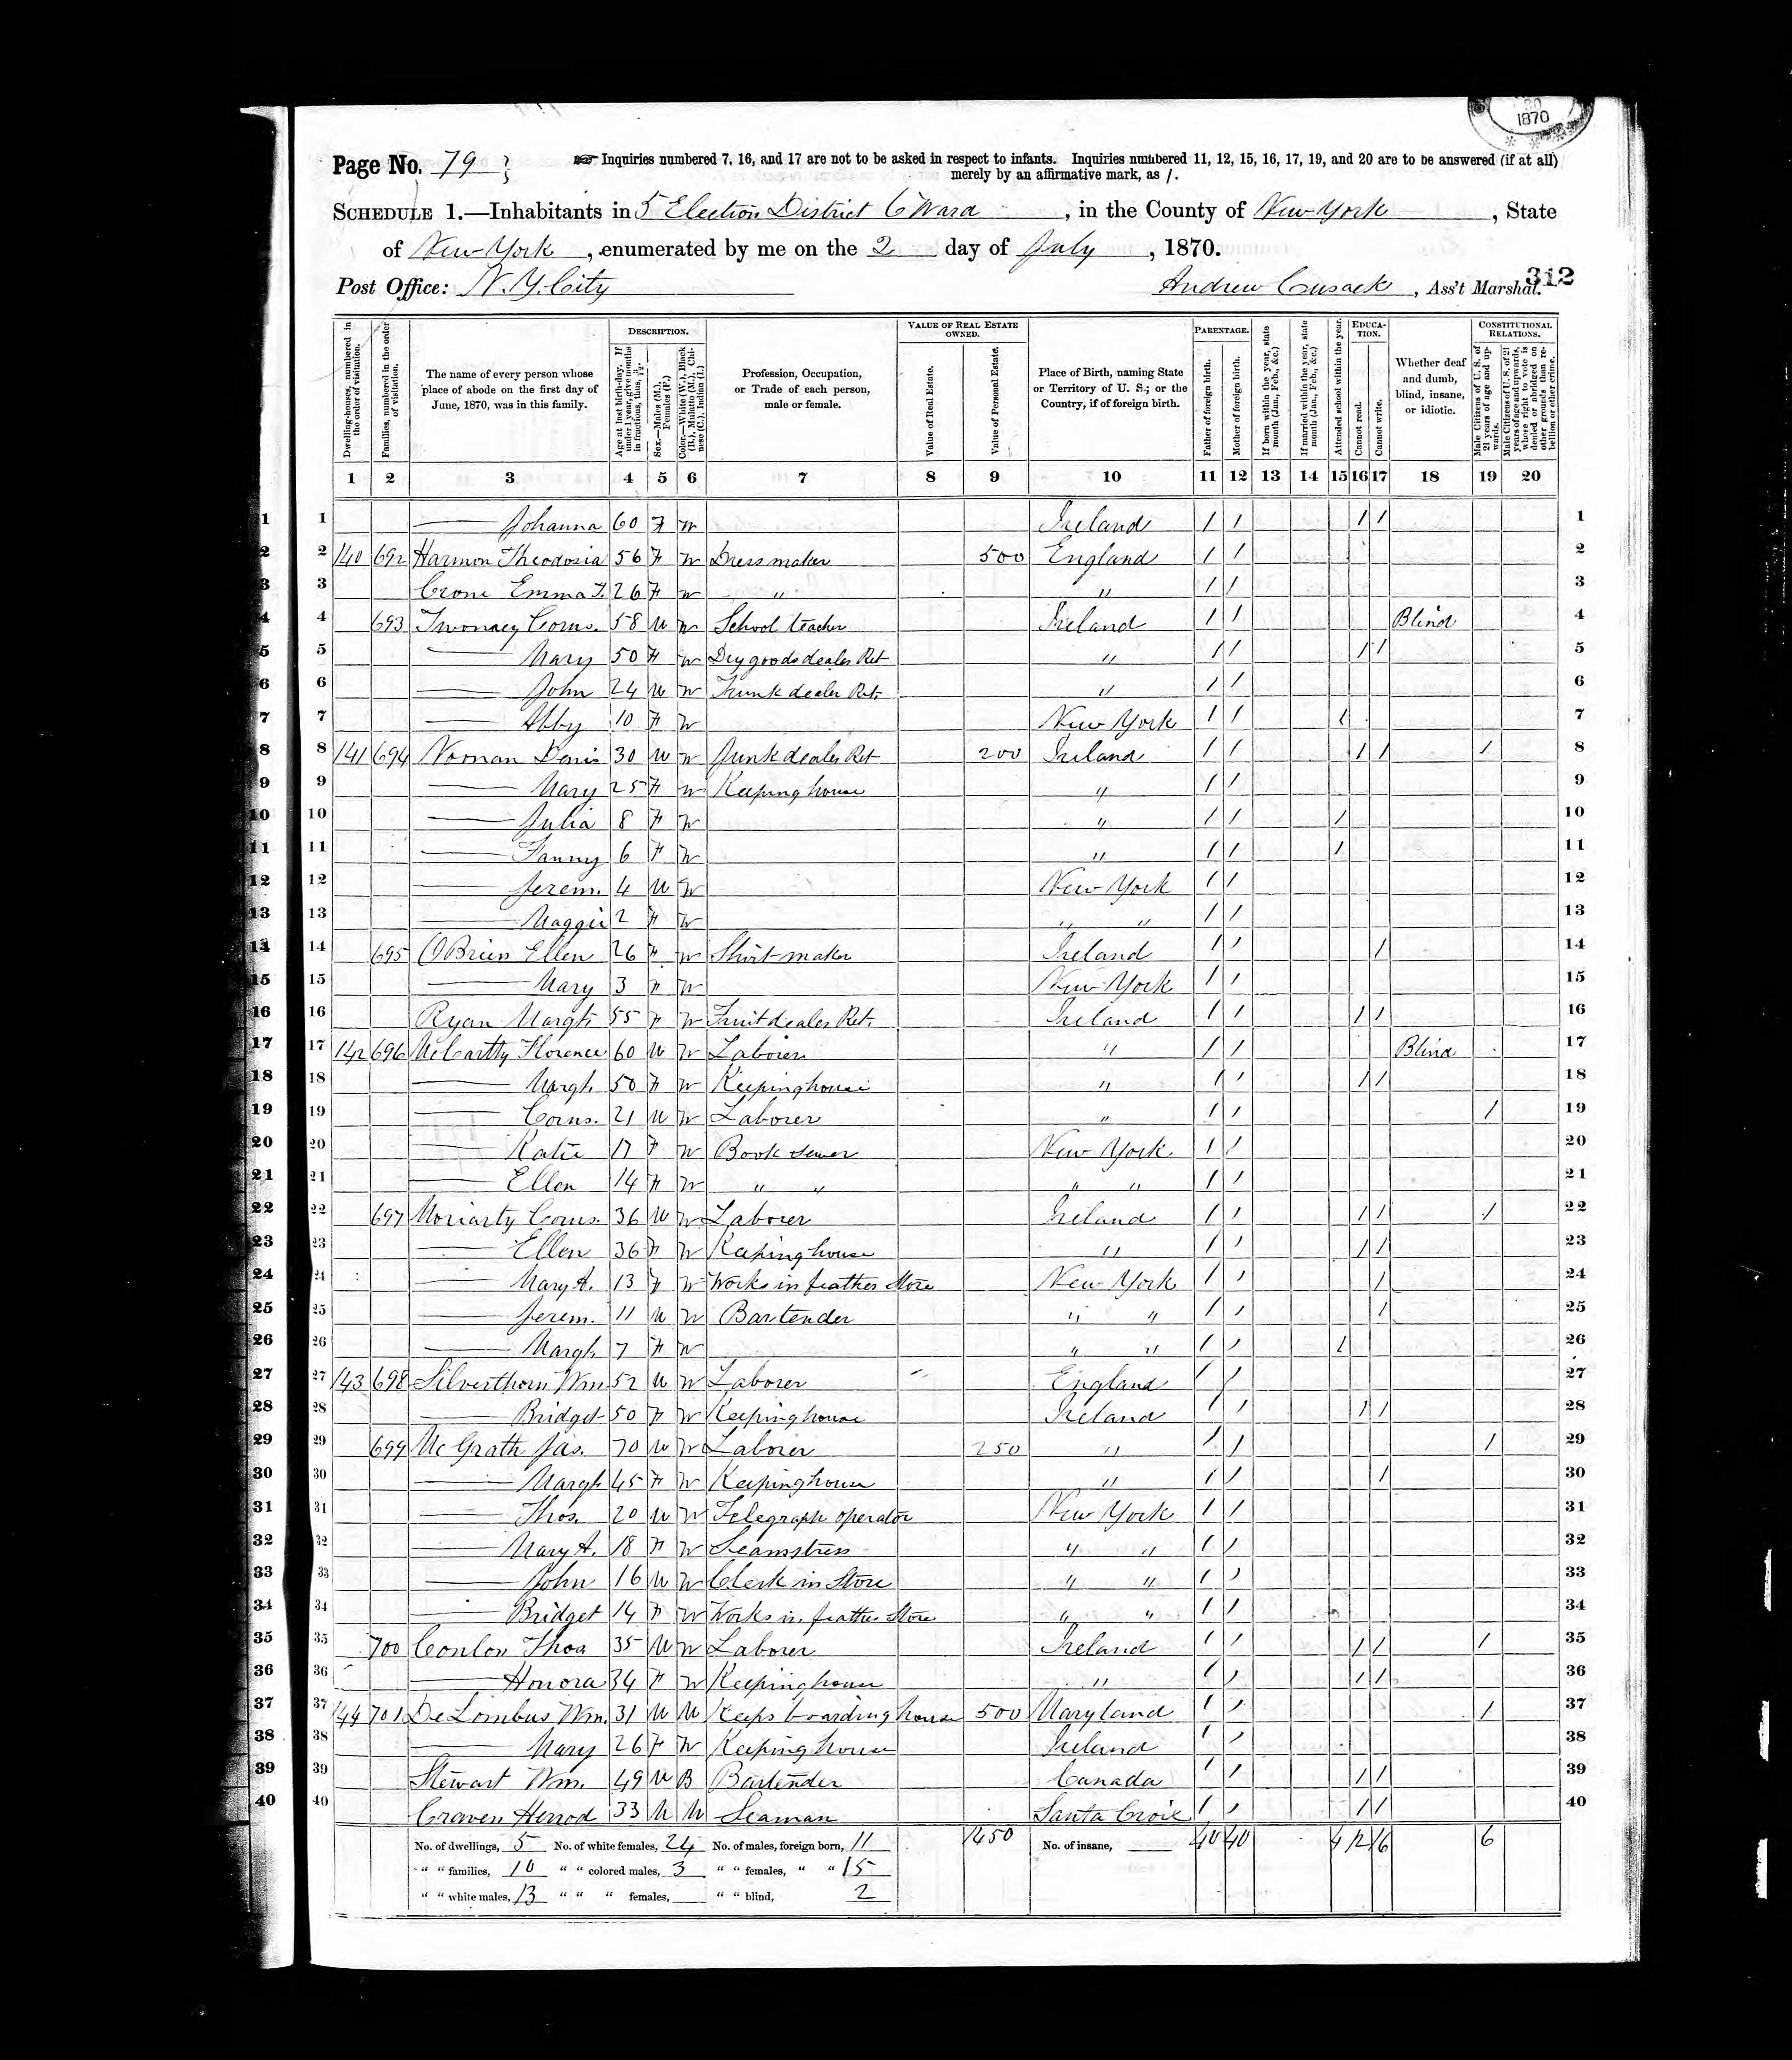 30
1870
Page No. 79
Inquiries numbered 7, 16, and 17 are not to be asked in respect to infants. Inquiries numbered 11, 12, 15, 16, 17, 19, and 20 are to be answered (if at all)
merely by an affirmative mark, as /.
SCHEDULE 1.—Inhabitants in 5 Election District 6 Ward, in the County of New York, State
of New York, enumerated by me on the 2 day of July, 1870.
Post Office: N.Y. City Andrew Cusack, Ass't Marshal.
312
Dwelling-houses, numbered in the order of visitation.
Families, numbered in the order of visitation.
The name of every person whose place of abode on the first day of June, 1870, was in this family.
DESCRIPTION.
Age at last birth-day. If under 1 year, give months in fractions, thus, 3/12.
Sex.—Males (M.), Females (F.)
Color.—White (W.), Black (B.), Mulatto (M.), Chinese (C.), Indian (I.)
Profession, Occupation, or Trade of each person, male or female.
VALUE OF REAL ESTATE OWNED.
Value of Real Estate.
Value of Personal Estate.
Place of Birth, naming State or Territory of U. S.; or the Country, if of foreign birth.
PARENTAGE.
Father of foreign birth.
Mother of foreign birth.
If born within the year, state month (Jan., Feb., &c.)
If married within the year, state month (Jan., Feb., &c.)
Attended school within the year.
EDUCATION.
Cannot read.
Cannot write.
Whether deaf and dumb, blind, insane, or idiotic.
CONSTITUTIONAL RELATIONS.
Male Citizens of U. S. of 21 years of age and upwards.
Male Citizens of U. S. of 21 years of age and upwards, whose right to vote is denied or abridged on other grounds than rebellion or other crime.
1 2 3 4 5 6 7 8 9 10 11 12 13 14 15 16 17 18 19 20
1 1 —— Johanna 60 F W Ireland / / / / 1
2 2 140 692 Harmon Theodosia 56 F W Dress maker 500 England / / 2
3 3 Crone Emma F. 26 F W " " / / 3
4 4 693 Twomey Corns. 58 M W School teacher Ireland / / Blind 4
5 5 —— Mary 50 F W Dry goods dealer Ret " / / / / 5
6 6 —— John 24 M W Trunk dealer Ret. " / / 6
7 7 —— Abby 10 F W New York / / / 7
8 8 141 694 Noonan Denis 30 M W Junk dealer Ret 200 Ireland / / / / / 8
9 9 —— Mary 25 F W Keeping house " / / 9
10 10 —— Julia 8 F W " / / / 10
11 11 —— Fanny 6 F W " / / / 11
12 12 —— Jerem. 4 M W New York / / 12
13 13 —— Maggie 2 F W " " / / 13
14 14 695 O'Brien Ellen 26 F W Shirt maker Ireland / / / 14
15 15 —— Mary 3 F W New York / / 15
16 16 Ryan Margt. 55 F W Fruit dealer Ret. Ireland / / / / 16
17 17 142 696 McCartty Florence 60 M W Laborer " / / Blind 17
18 18 —— Margt. 50 F W Keeping house " / / / / 18
19 19 —— Corns. 21 M W Laborer " / / / 19
20 20 —— Katie 17 F W Book sewer New York / / 20
21 21 —— Ellen 14 F W " " " " / / 21
22 22 697 Moriarty Corns. 36 M W Laborer Ireland / / / / / 22
23 23 —— Ellen 36 F W Keeping house " / / / / 23
24 24 —— Mary A. 13 F W Works in feather Store New York / / / 24
25 25 —— Jerem. 11 M W Bartender " " / / / 25
26 26 —— Margt. 7 F W " " / / / 26
27 27 143 698 Silverthorn Wm 52 M W Laborer England / / 27
28 28 —— Bridget 50 F W Keeping house Ireland / / / / 28
29 29 699 McGrath Jas. 70 M W Laborer 250 " / / / 29
30 30 —— Margt 45 F W Keeping house " / / / 30
31 31 —— Thos. 20 M W Telegraph operator New York / / 31
32 32 —— Mary A. 18 F W Seamstress " " / / 32
33 33 —— John 16 M W Clerk in Store " " / / 33
34 34 —— Bridget 14 F W Works in feather Store " " / / 34
35 35 700 Conlon Thos 35 M W Laborer Ireland / / / / / 35
36 36 —— Honora 34 F W Keeping house " / / / / 36
37 37 144 701 DeLombus Wm. 31 M M Keeps boarding house 500 Maryland / / / 37
38 38 —— Mary 26 F W Keeping house Ireland / / 38
39 39 Stewart Wm. 49 M B Bartender Canada / / / / 39
40 40 Craven Herrod 33 M M Seaman Santa Croix / / / / 40
No. of dwellings, 5 No. of white females, 24 No. of males, foreign born, 11 1450 No. of insane, 40 40 4 12 16 6
" " families, 10 " " colored males, 3 " " females, " " 15
" " white males, 13 " " " females, " " blind, 2